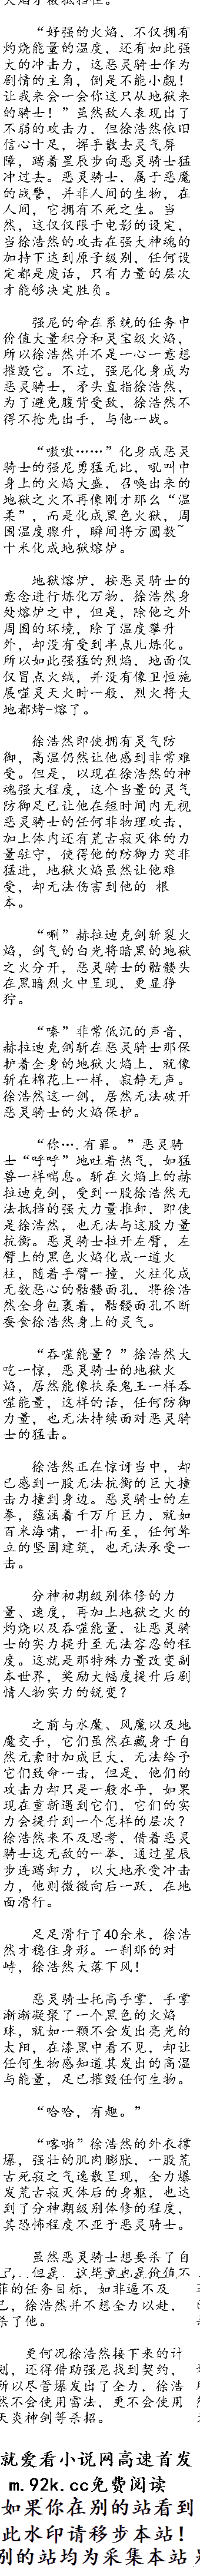 “好强的火焰，不仅拥有
灼烧能量的温度，还有如此强
大的冲击力，这恶灵骑士作为
剧情的主角，倒是不能小觑！
让我来会一会你这只从地狱来
的骑士！”虽然敌人表现出了
不弱的攻击力，但徐浩然依旧
信心十足，挥手散去灵气屏
障，踏着星辰步向恶灵骑士猛
冲过去。恶灵骑士，属于恶魔
的战警，并非人间的生物，在
人间，它拥有不死之生。当
然，这仅仅限于电影的设定，
当徐浩然的攻击在强大神魂的
加持下达到原子级别，任何设
定都是废话，只有力量的层次
才能够决定胜负。
强尼的命在系统的任务中
价值大量积分和灵宝级火焰，
所以徐浩然并不是一心一意想
摧毁它。不过，强尼化身成为
恶灵骑士，矛头直指徐浩然，
为了避免腹背受敌，徐浩然不
得不抢先出手，与他一战。
“嗷嗷……”化身成恶灵
骑士的强尼勇猛无比，吼叫中
身上的火焰大盛，召唤出来的
地狱之火不再像刚才那么“温
柔”，而是化成黑色火狱，周
围温度骤升，瞬间将方圆数~
十米化成地狱熔炉。
地狱熔炉，按恶灵骑士的
意念进行炼化万物，徐浩然身
处熔炉之中，但是，除他之外
周围的环境，除了温度攀升
外，却没有受到半点儿炼化。
所以如此强猛的烈焰，地面仅
仅冒点火绒，并没有像卫恒施
展噬灵天火时一般，烈火将大
地都烤-熔了。
徐浩然即使拥有灵气防
御，高温仍然让他感到非常难
受。但是，以现在徐浩然的神
魂强大程度，这个当量的灵气
防御足已让他在短时间内无视
恶灵骑士的任何非物理攻击，
加上体内还有荒古寂灭体的力
量驻守，使得他的防御力突非
猛进，地狱火焰虽然让他难
受，却无法伤害到他的 根
本。
“唰”赫拉迪克剑斩裂火
焰，剑气的白光将暗黑的地狱
之火分开，恶灵骑士的骷髅头
在黑暗烈火中呈现，更显狰
狞。
“嗪”非常低沉的声音，
赫拉迪克剑斩在恶灵骑士那保
护着全身的地狱火焰上，就像
斩在棉花上一样，寂静无声。
徐浩然这一剑，居然无法破开
恶灵骑士的火焰保护。
“你….有罪。”恶灵骑
士“呼呼”地吐着热气，如猛
兽一样喘息。斩在火焰上的赫
拉迪克剑，受到一股徐浩然无
法抵挡的强大力量推卸，即使
是徐浩然，也无法与这股力量
抗衡。恶灵骑士拉开左臂，左
臂上的黑色火焰化成一道火
柱，随着手臂一撞，火柱化成
无数恶心的骷髅面孔，将徐浩
然全身包裹着，骷髅面孔不断
蚕食徐浩然身上的灵气。
“吞噬能量？”徐浩然大
吃一惊，恶灵骑士的地狱火
焰，居然能像扶桑鬼王一样吞
噬能量，这样的话，任何防御
力量，也无法持续面对恶灵骑
士的猛击。
徐浩然正在惊讶当中，却
已感到一股无法抗衡的巨大撞
击力撞到身边。恶灵骑士的左
拳，蕴涵着千万斤巨力，就如
百米海啸，一扑而至，任何耸
立的坚固建筑，也无法承受一
击。
分神初期级别体修的力
量、速度，再加上地狱之火的
灼烧以及吞噬能量，让恶灵骑
士的实力提升至无法容忍的程
度。这就是那特殊力量改变副
本世界，奖励大幅度提升后剧
情人物实力的锐变？
之前与水魔、风魔以及地
魔交手，它们虽然在藏身于自
然元素时加成巨大，无法给予
它们致命一击，但是，他们的
攻击力却只是一般水平，如果
现在重新遇到它们，它们的实
力会提升到一个怎样的层次？
徐浩然来不及思考，借着恶灵
骑士这无敌的一拳，通过星辰
步连踏卸力，以大地承受冲击
力，他则微微向后一跃，在地
面滑行。
足足滑行了40余米，徐浩
然才稳住身形。一刹那的对
峙，徐浩然大落下风！
恶灵骑士托高手掌，手掌
渐渐凝聚了一个黑色的火焰
球，就如一颗不会发出亮光的
太阳，在漆黑中看不见，却让
任何生物感知道其发出的高温
与能量，足已摧毁任何生物。
“哈哈，有趣。”
“喀啪”徐浩然的外衣撑
爆，强壮的肌肉膨胀，一股荒
古死寂之气逸散呈现，全力爆
发荒古寂灭体后的身躯，也达
到了分神期级别体修的程度，
其恐怖程度不亚于恶灵骑士。
虽然恶灵骑士想要杀了自
菲的任务目标，如非逼不及
己，徐浩然并不想全力以赴，
杀了他。
更何况徐浩然接下来的计
划，还得借助强尼找到契约，
所以尽管爆发出了全力，徐浩
然不会使用雷法，更不会使用
天炎神剑等杀招。
就爱看小说网高速首发
m.92k.cc免费阅读
如果你在别的站看到
此水印请移步本站！
别的站均为采集本站